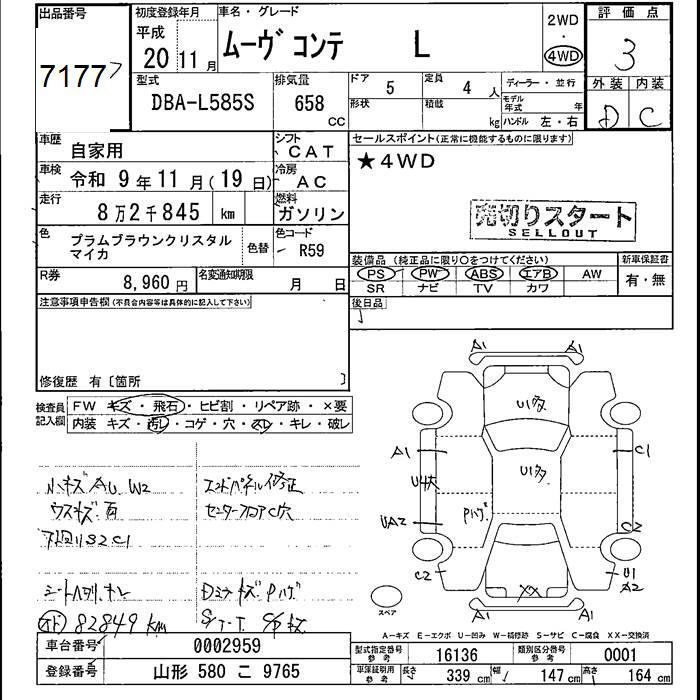 出品番号
7177
初度登録年月
平成
20 11月
車名・グレード
ムーヴ コンテ L
2WD
・
4WD
評価点
3
外装 内装
D C
型式
DBA-L585S
排気量
658
CC
ドア 5
定員 4 人
形状
積載 kg
ディーラー・並行
モデル年式 年
ハンドル 左・右
車歴
自家用
シフト
CAT
車検
令和 9年11月(19日)
冷房
AC
走行
8万2千845 km
燃料
ガソリン
色
プラムブラウンクリスタル
マイカ
色替
色コード
R59
R券
8,960円
名変通知期限
月 日
セールスポイント(正常に機能するものに限ります)
★4WD
売切りスタート
SELLOUT
装備品 (純正品に限り○をつけてください)
PS PW ABS エアB AW
SR ナビ TV カワ
新車保証書
有・無
後日品
注意事項申告欄(不具合内容等は具体的に記入して下さい)
修復歴 有〔箇所 〕
検査員
記入欄
FW キズ・飛石・ヒビ割・リペア跡・×要
内装 キズ・汚レ・コゲ・穴・スレ・キレ・破レ
小キズ AU W2
ウスキズ有
下廻りS2C1
エンドパネル修正
センターフロアC穴
82849 km
A1 A1
U1多
A1
U4大
UA2
U1多
Pハゲ
C1
C2
C2
U1
A2
XX
A1 A1
スペア
A-キズ E-エクボ U-凹み W-補修跡 S-サビ C-腐食 XX-交換済
車台番号
0002959
登録番号
山形 580 こ 9765
型式指定番号
参考
16136
類別区分番号
参考
0001
車庫証明引用
参考
長さ 339 cm
幅 147 cm
高さ 164 cm